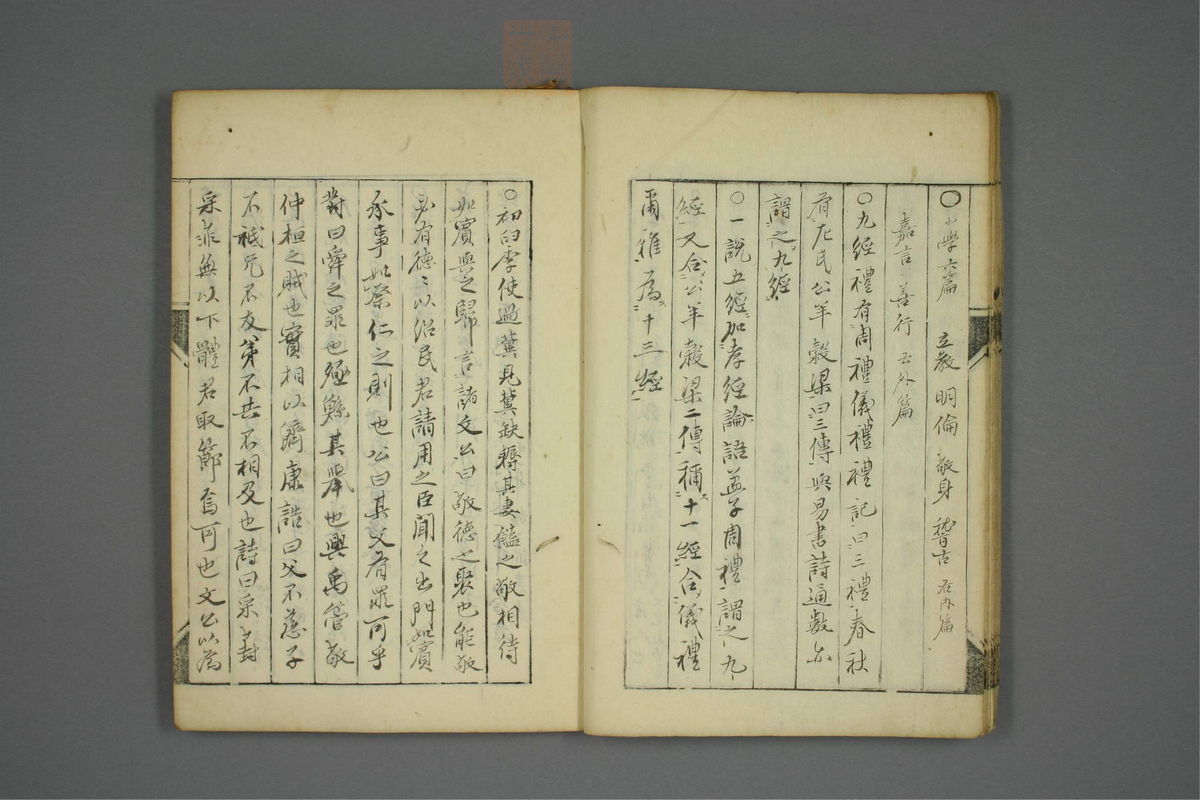 ○小學六篇 立教 明倫 敬身 稽古 右内篇
嘉言 善行 右外篇
○九經禮有周禮儀禮禮記曰三禮春秋
有左氏公羊穀梁曰三傳與易書詩通數亦
謂之九經
○一說五經加孝經論語孟子周禮謂之九
經又合公羊穀梁二傳稱十一經合儀禮
爾雅爲十三經
○初臼季使過冀見冀缺耨其妻饁之敬相待
如賓與之歸言諸文公曰敬德之聚也能敬
必有德〻以治民君請用之臣聞之出門如賓
承事如祭仁之則也公曰其父有罪可乎
對曰舜之罪也殛鯀其擧也興禹管敬
仲桓之賊也實相以濟康誥曰父不慈子
不祗兄不友弟不共不相及也詩曰采葑
采菲無以下體君取節焉可也文公以爲